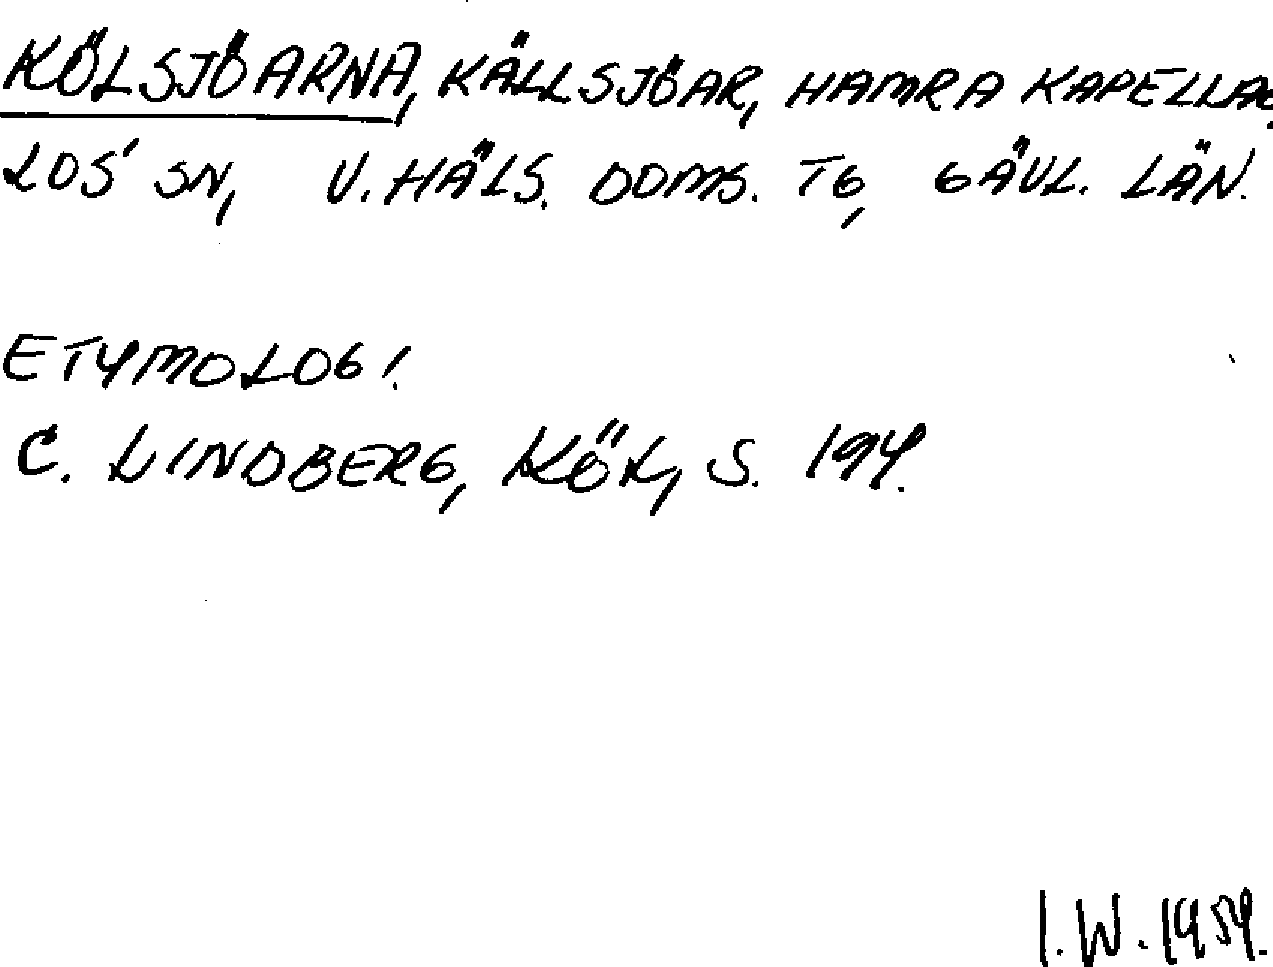 KÖLSJÖARNA, KÄLLSJÖAR, HAMRA KAPELLAG.
LOS' SN, V. HÄLS. DOMS. TG, GÄVL. LÄN.
ETYMOLOGI.
C. LINDBERG, KÖL, S. 194.
I. W. 1959.